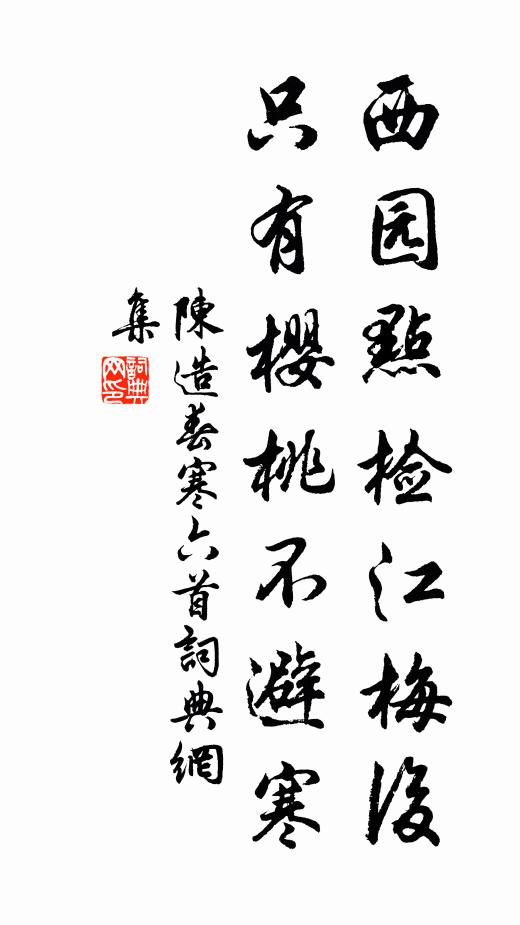 西园點检江梅後
只有櫻桃不避寒
陳造春寒六首詞典網
集
詞典网印